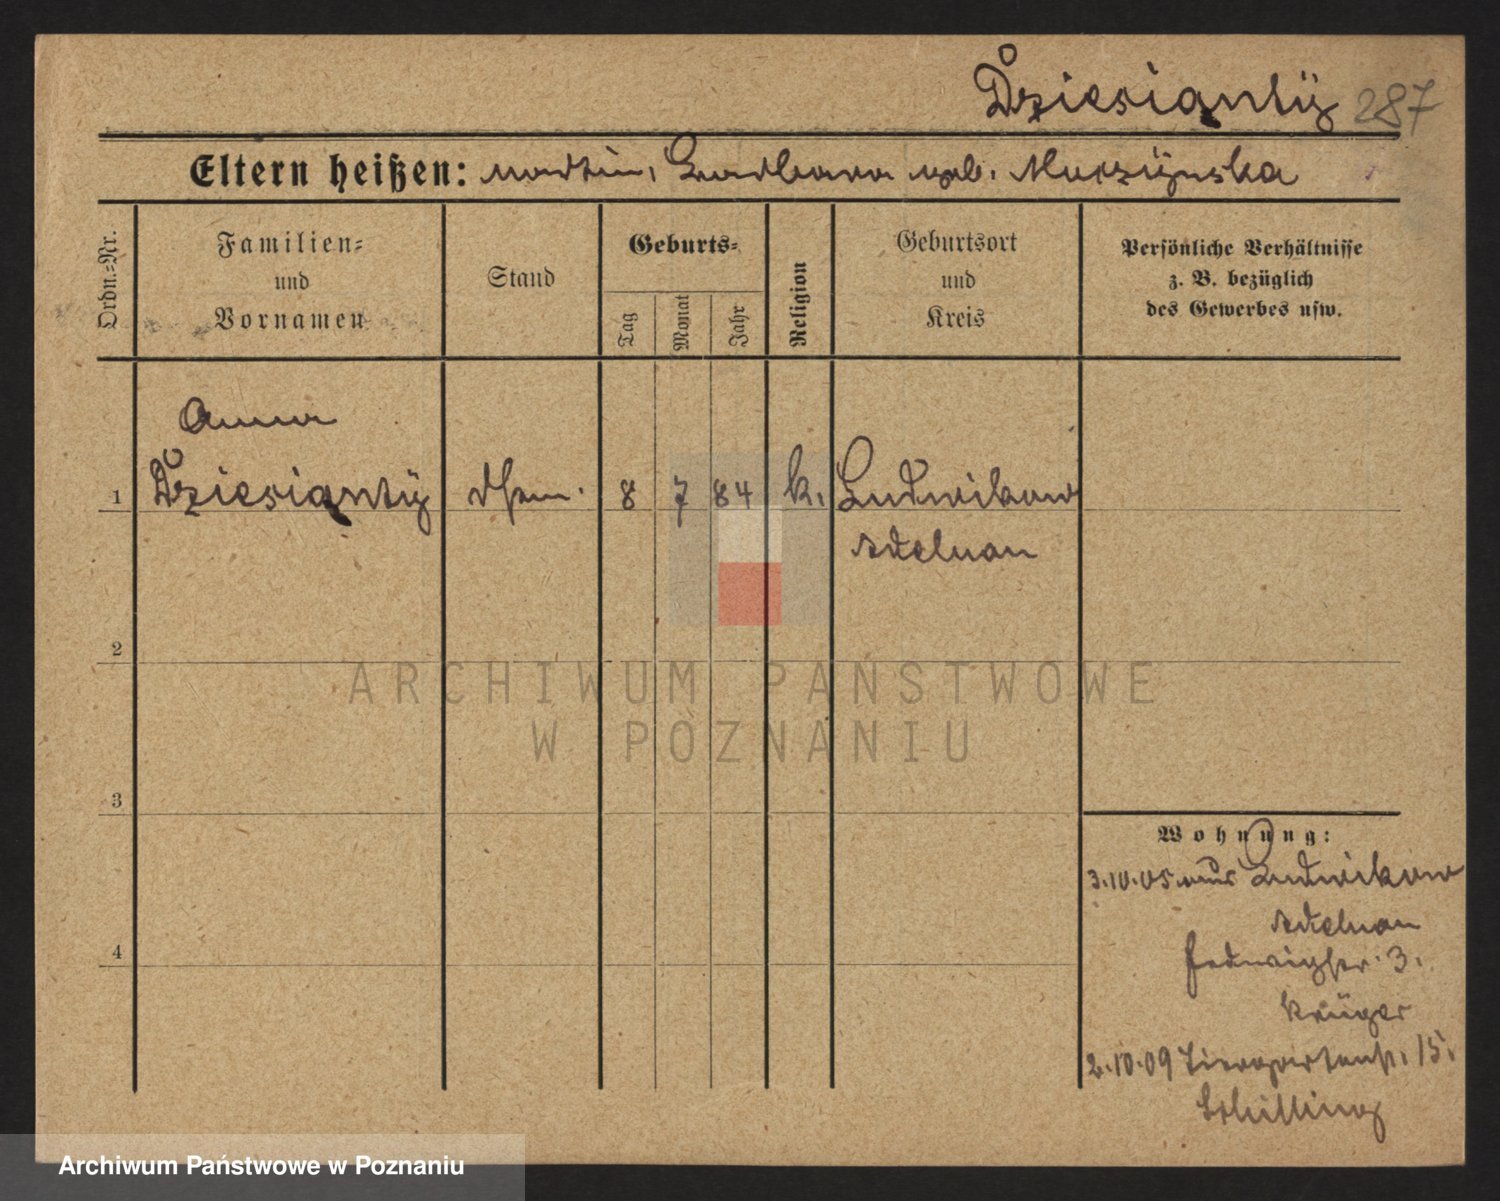 Dziesiąnty 287
Eltern heißen: Martin, Barbara geb. Murzynska
Ordn.-Nr.
Familien-
und
Vornamen
Stand
Geburts-
Tag
Monat
Jahr
Religion
Geburtsort
und
Kreis
Persönliche Verhältnisse
z. B. bezüglich
des Gewerbes usw.
Anna
1 Dziesiąnty 8 7 84 k. Ludwikowo
Adelnau
2
3
4
Wohnung:
3.10.05 aus Ludwikowo
Adelnau
Hedwigstr. 3.
Krüger
2.10.09 Tiergartenstr. 15.
Schilling
ARCHIWUM PAŃSTWOWE
W POZNANIU
Archiwum Państwowe w Poznaniu